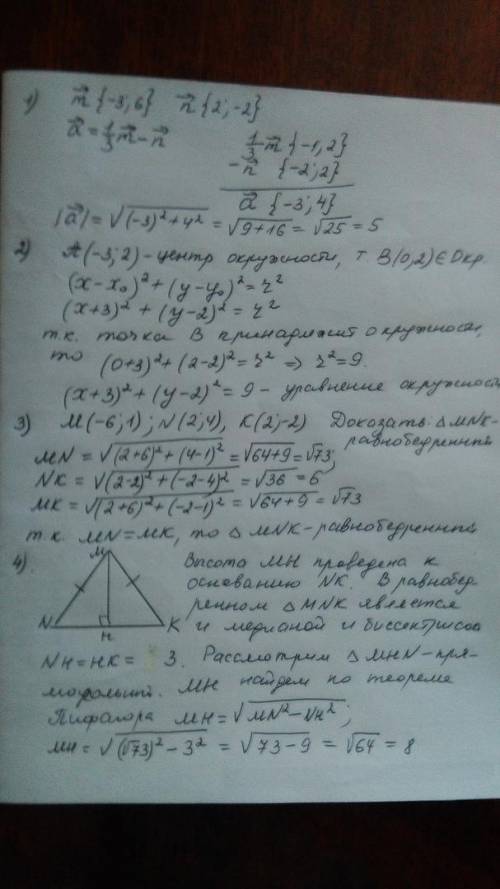 1) m⃗ {-3; 6} n⃗ {2; -2}
a⃗ = 1/3 m⃗ - n⃗
1/3 m⃗ {-1, 2}
- n⃗ {-2; 2}
a⃗ {-3; 4}
|a⃗| = √((-3)² + 4²) = √(9+16) = √25 = 5
2) A(-3; 2) - центр окружности, т. B(0,2) ∈ Окр.
(x-x₀)² + (y-y₀)² = r²
(x+3)² + (y-2)² = r²
т.к. точка B принадлежит окружности,
то (0+3)² + (2-2)² = r² ⇒ r² = 9.
(x+3)² + (y-2)² = 9 - уравнение окружности
3) M(-6; 1); N(2; 4), K(2; -2) Доказать: △MNK-
равнобедренный
MN = √((2+6)² + (4-1)²) = √(64+9) = √73;
NK = √((2-2)² + (-2-4)²) = √36 = 6
MK = √((2+6)² + (-2-1)²) = √(64+9) = √73
т.к. MN = MK, то △MNK - равнобедренный
4)
M
N
H
K
Высота MH проведена к
основанию NK. В равнобед
ренном △MNK является
и медианой и биссектрисой
NH = HK = 3. Рассмотрим △MHN - пря-
моугольный. MH найдем по теореме
Пифагора MH = √(MN² - NH²);
MH = √((√73)² - 3²) = √(73-9) = √64 = 8